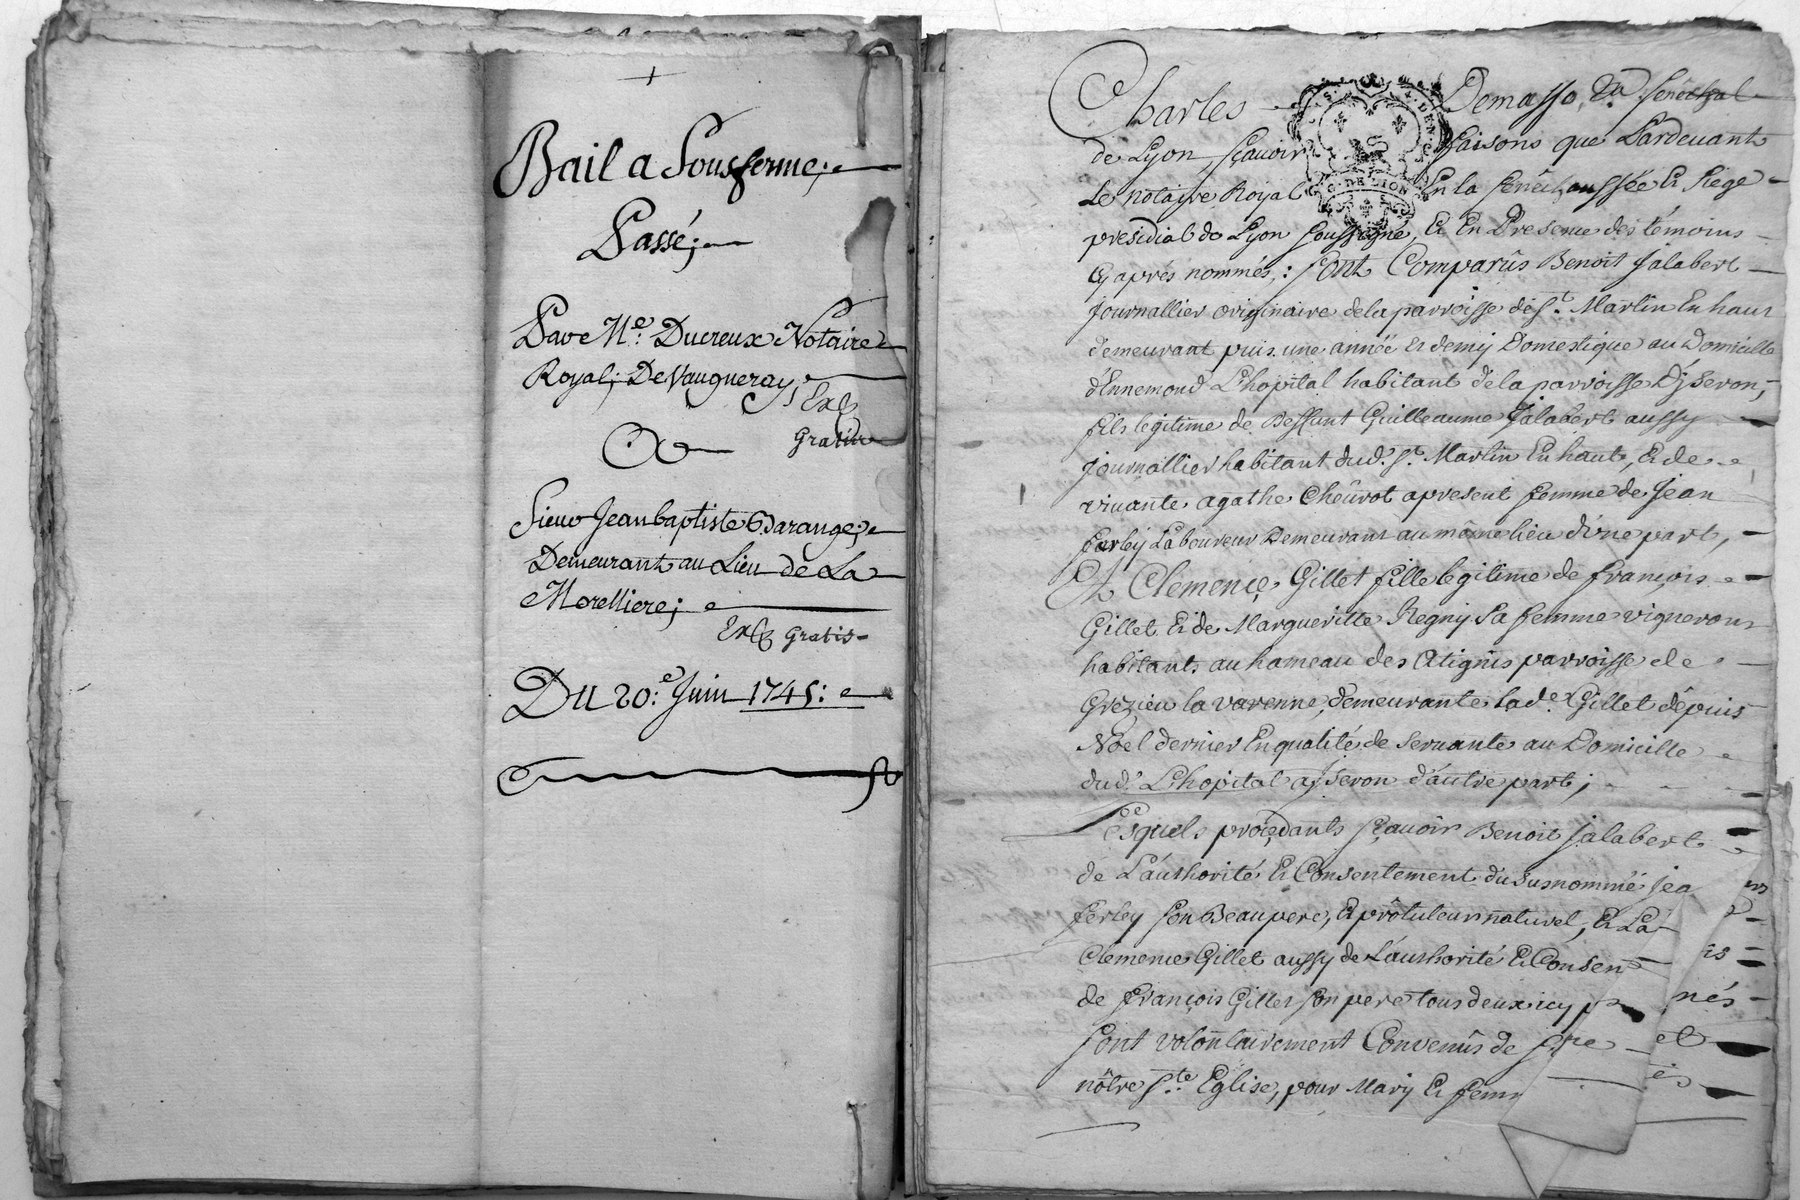 +
Bail a Sousferme;
Passé;
Par Me. Ducreux Notaire
Royal; De Vaugneray;
Exp
Gratis
Sieur Jean baptiste Barange;
Demeurant au Lieu de La
Morelliere;
Exp Gratis
Du 20.e Juin 1745:
Charles Demasso, Senéchal
de Lyon, sçavoir faisons que Pardevant
Le Notaire Royal En la senéchaussée et siege
presidial de Lyon soussigné, et En Presence des témoins
Cy aprés nommés; sont Comparûs Benoit jalabert
journallier originaire de la parroisse de St. Martin En haut
demeurant puis une année et demy Domestique au Domicille
d'Ennemond L'hopital habitant de la parroisse Dyseron,
fils legitime de Deffunt Guilleaume jalabert aussy
journallier habitant dud. St. Martin En haut, et de
vivante agathe Cheûrot apresent femme de Jean
ferley Laboureur Demeurant au même lieu d'une part,
Et Clemençe Gillet fille legitime de françois
Gillet et de Margueritte Regny sa femme vignerons
habitants au hameau des Atignis parroisse de
Grezieu la varenne, demeurante lade. Gillet dépuis
Noel dernier En qualité de servante au Domicille
dud. L'hopital a yseron d'autre part;
Lesquels proçedants sçavoir Benoit jalabert
de L'authorité et Consentement du susnommé jea
ferley son Beaupere, et prôtuteur naturel, et La
Clemence Gillet aussy de L'authorité et Consen
de françois Gillet son pere tous deux icy p nés
sont volontairement Convenûs de et
nôtre Ste. Eglise, pour Mary et fem
S. DEN.
G. DE LION